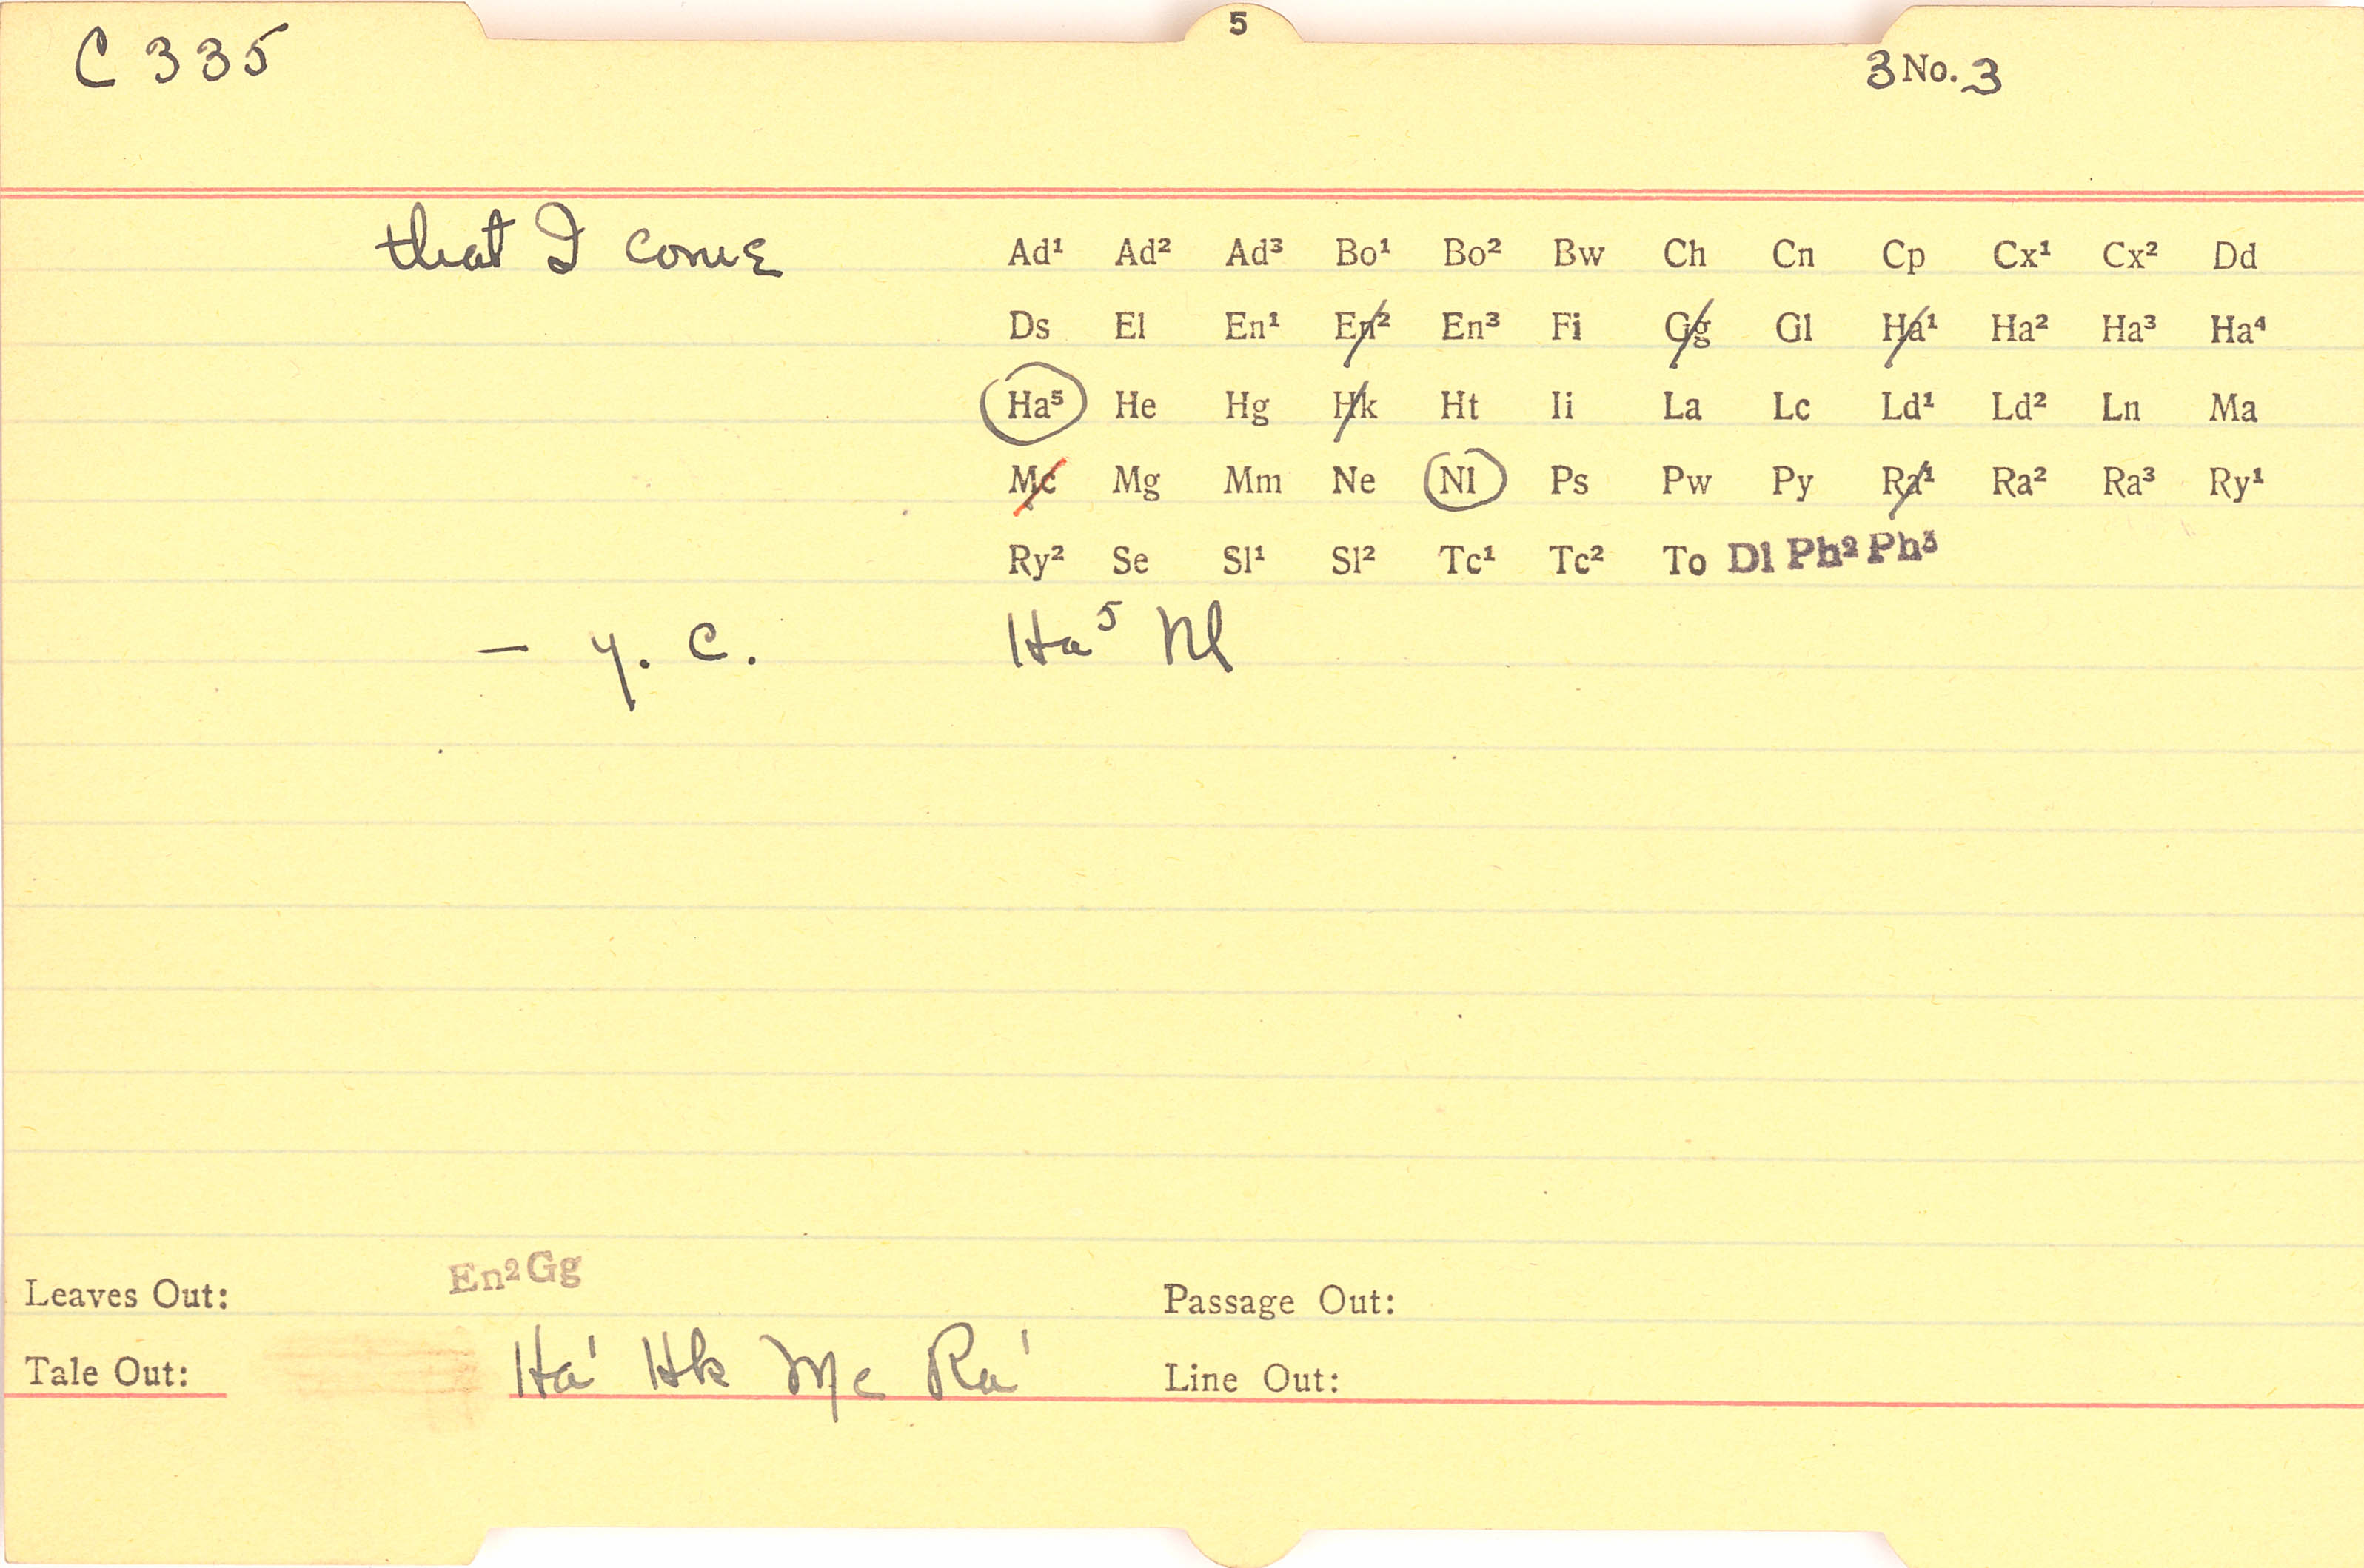 5
C 335 3 No. 3
that I come Ad¹ Ad² Ad³ Bo¹ Bo² Bw Ch Cn Cp Cx¹ Cx² Dd
Ds El En¹ En² En³ Fi Gg Gl Ha¹ Ha² Ha³ Ha⁴
Ha⁵ He Hg Hk Ht Ii La Lc Ld¹ Ld² Ln Ma
Mc Mg Mm Ne Nl Ps Pw Py Ra¹ Ra² Ra³ Ry¹
Ry² Se Sl¹ Sl² Tc¹ Tc² To Dl Ph² Ph³
– y. c. Ha⁵ Nl
Leaves Out: En² Gg Passage Out:
Tale Out: Ha¹ Hk Mc Ra¹ Line Out: